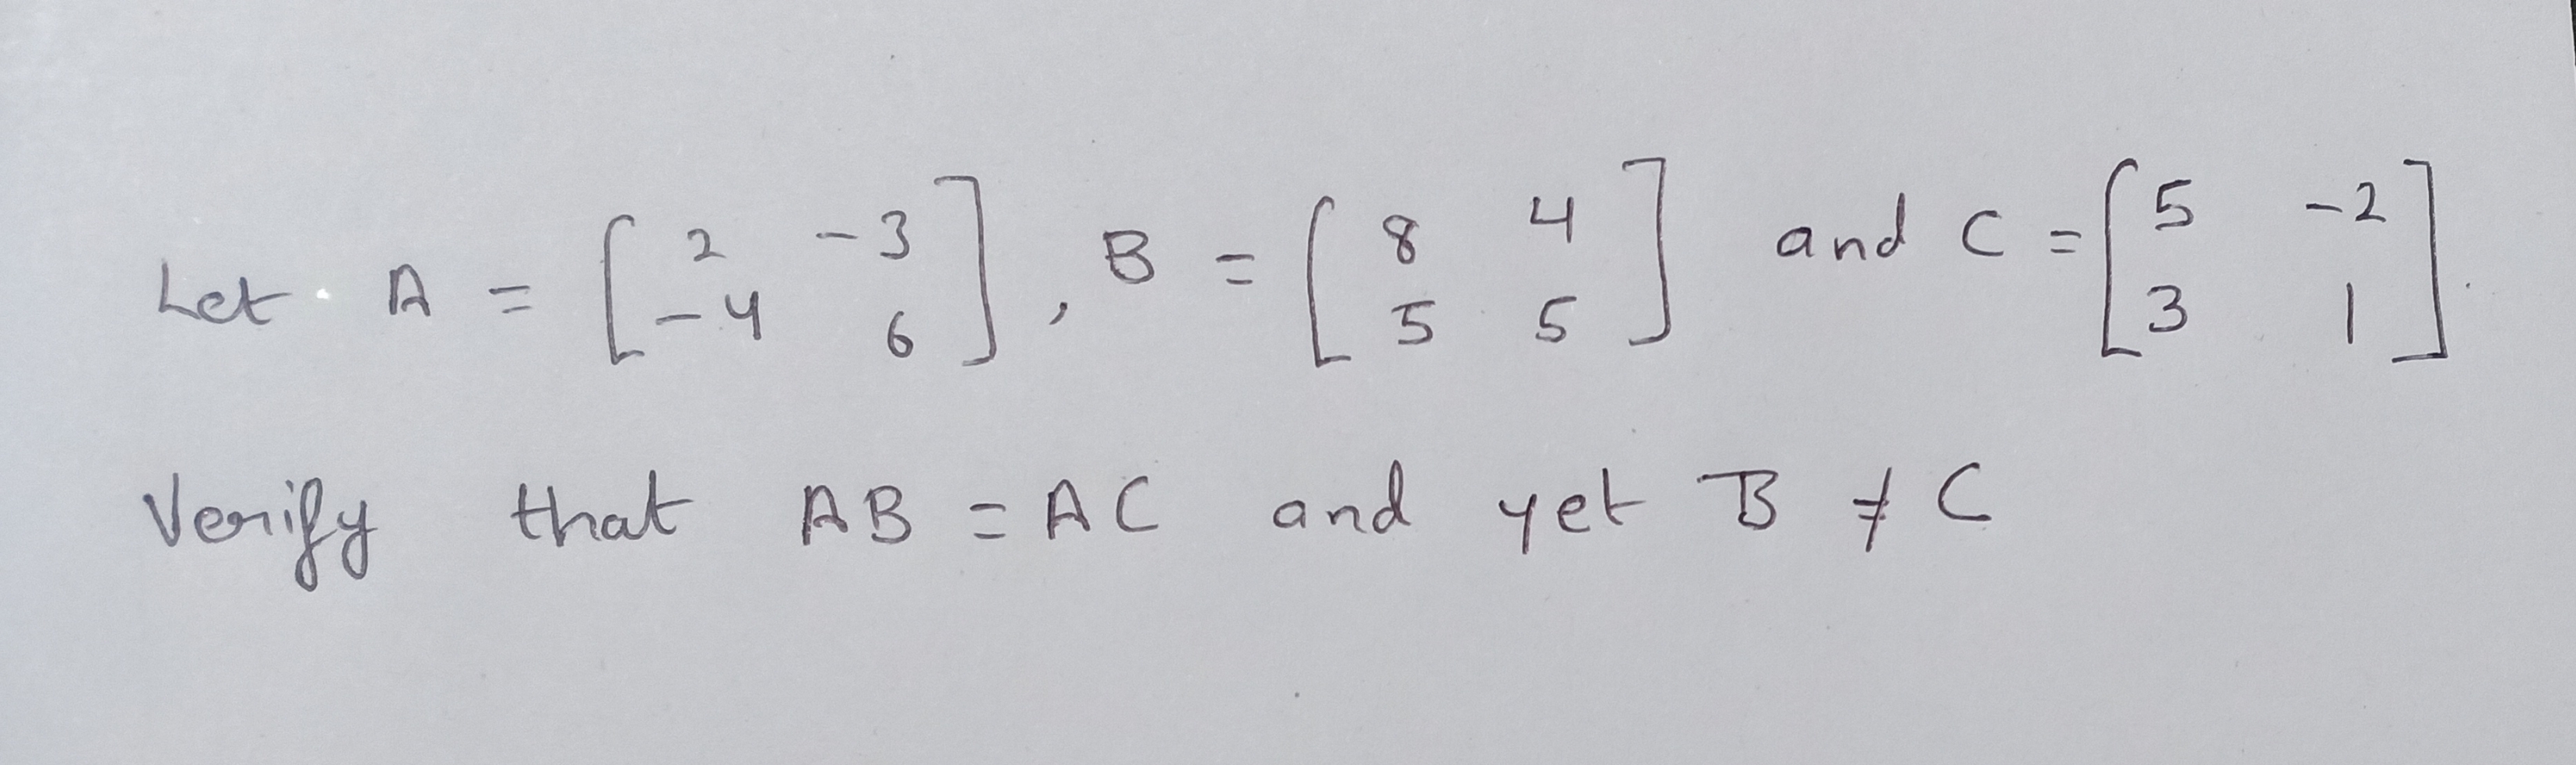 Let A = [2 -3; -4 6], B = [8 4; 5 5] and C = [5 -2; 3 1].
Verify that AB = AC and yet B ≠ C